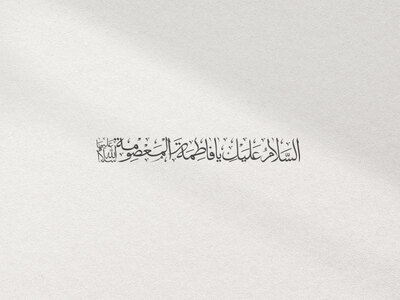 السَّلامُ عَلَيْكِ يا فاطِمَةَ الْمَعْصُومَة سلام الله عليها